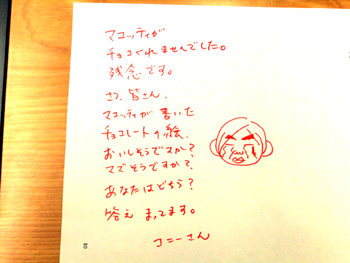 マコッティが
チョコくれませんでした。
残念です。
さて、皆さん、
マコッティが書いた
チョコレートの絵、
おいしそうですか?
マズそうですか?
あなたはどちら?
答えまってます。
コニーさん
10